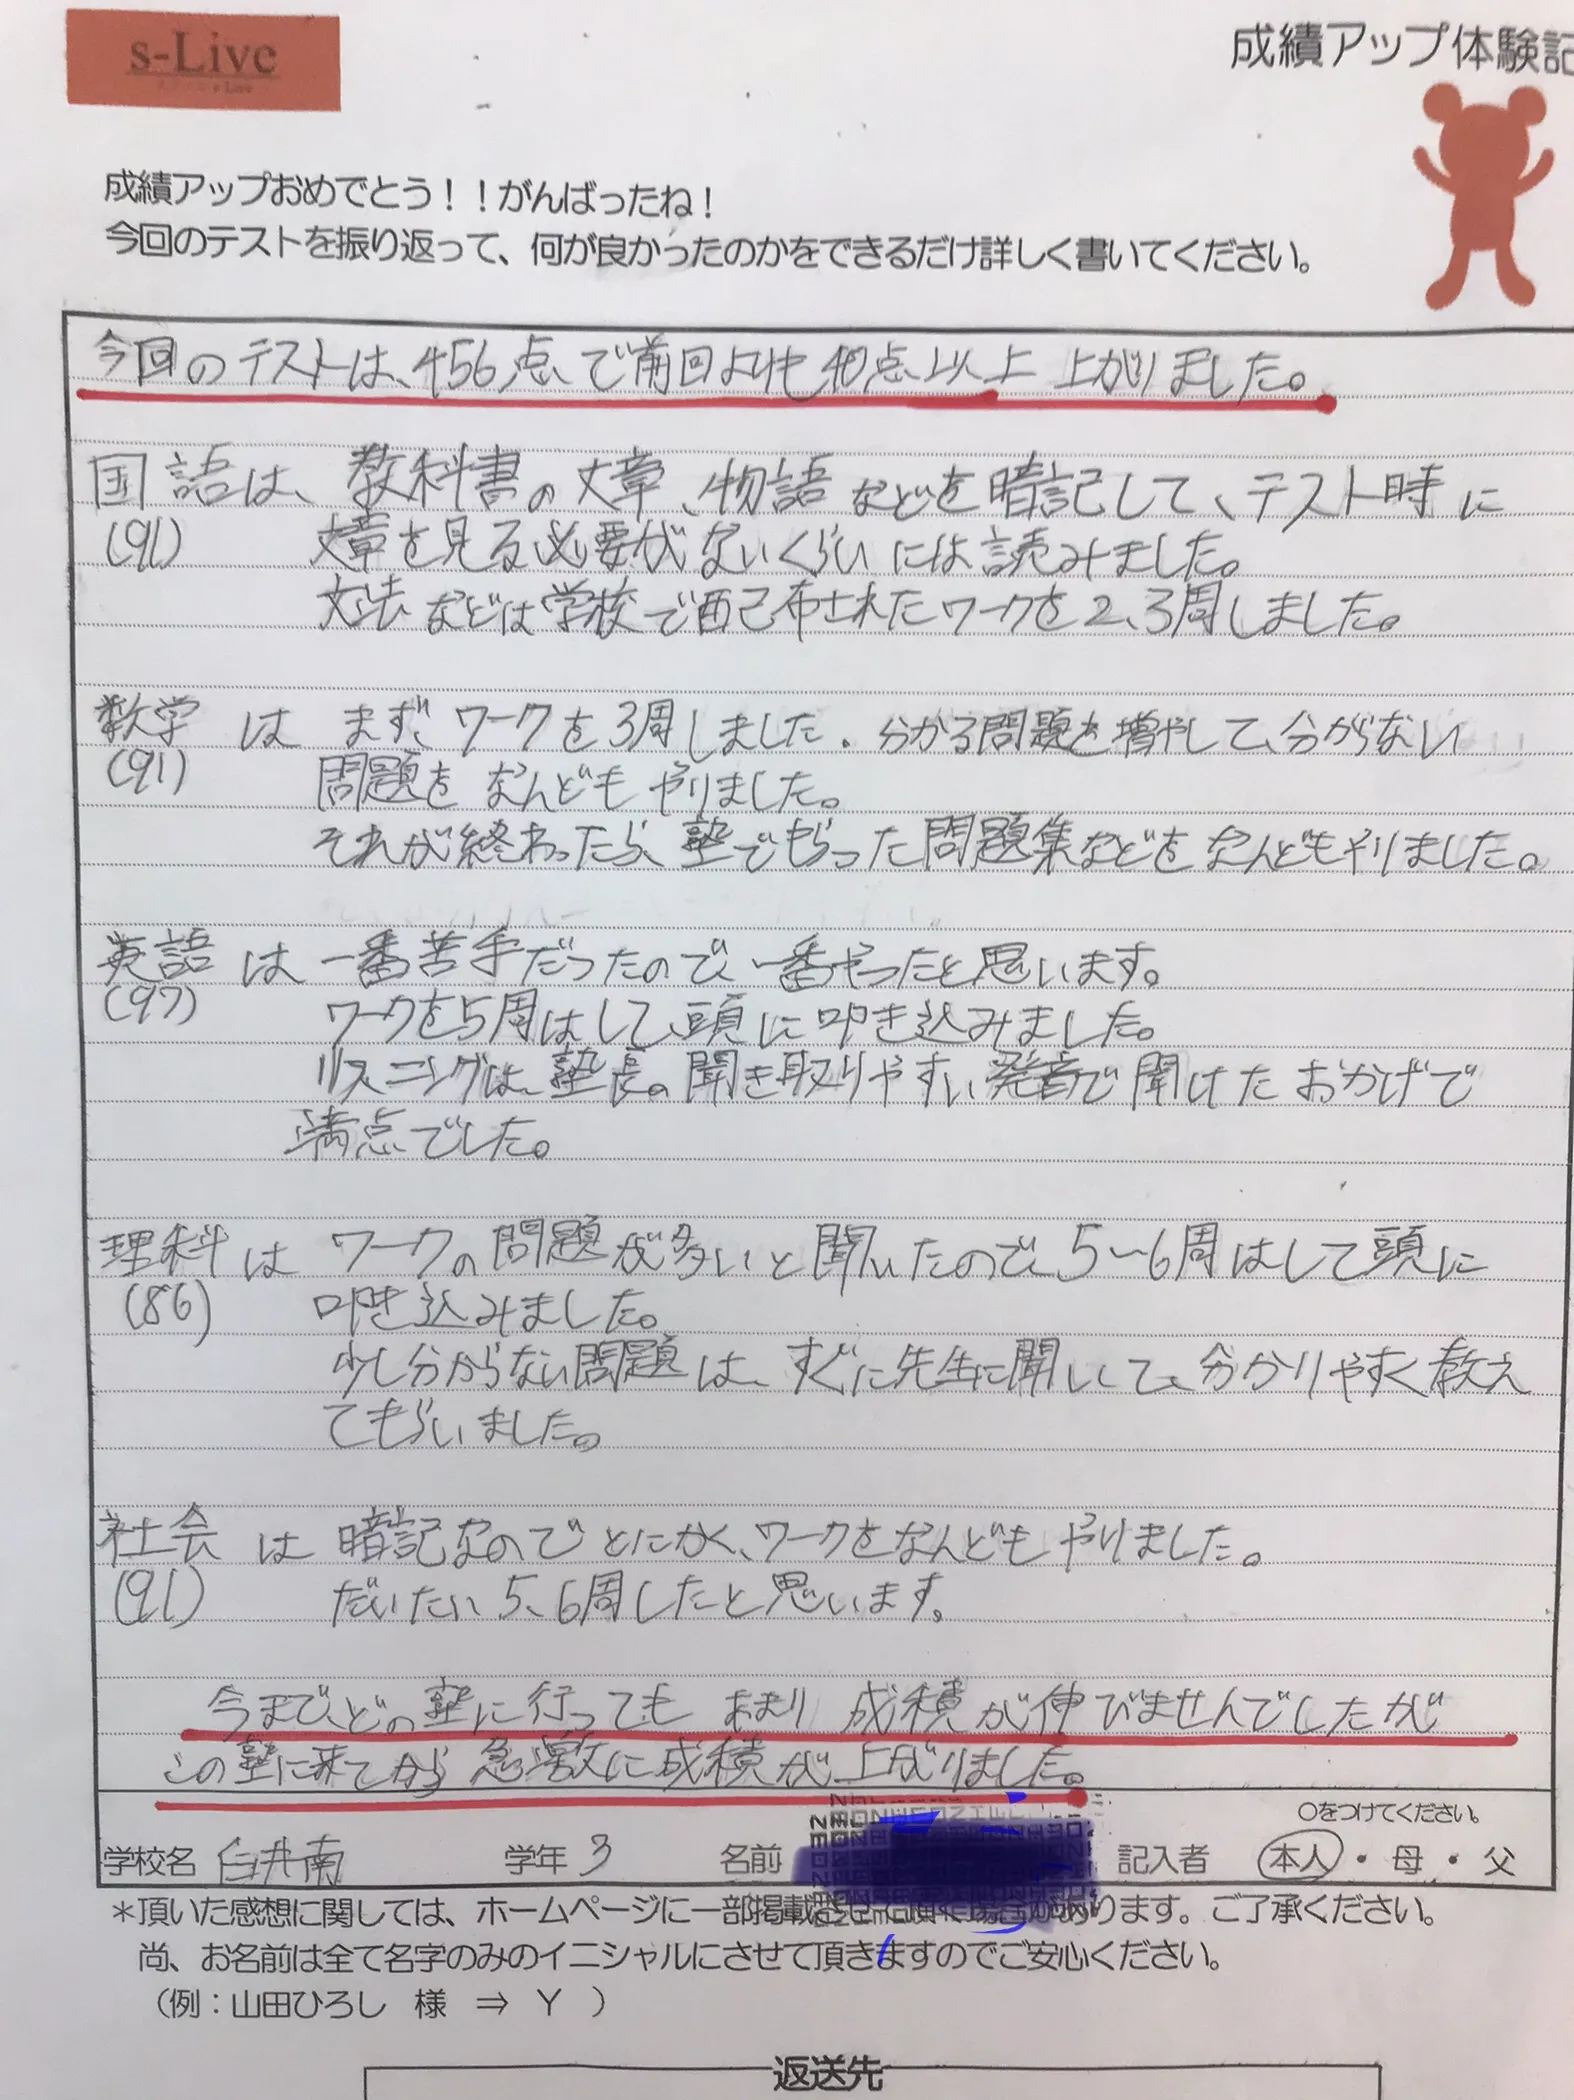 s-Live
成績アップ体験記
成績アップおめでとう！！がんばったね！
今回のテストを振り返って、何が良かったのかをできるだけ詳しく書いてください。
今回のテストは、456点で前回よりも40点以上 上がりました。
国語は、教科書の文章、物語などを暗記して、テスト時に
(91) 文章を見る必要がないくらいには読みました。
文法などは学校で配布されたワークを2、3周しました。
数学は まず、ワークを3周しました。分かる問題を増やして、分からない
(91) 問題をなんどもやりました。
それが終わったら、塾でもらった問題集などをなんどもやりました。
英語は 一番苦手だったので、一番やったと思います。
(97) ワークを5周はして、頭に叩き込みました。
リスニングは、塾長の聞き取りやすい発音で聞けたおかげで
満点でした。
理科は ワークの問題が多いと聞いたので、5〜6周はして頭に
(86) 叩き込みました。
少し分からない問題は、すぐに先生に聞いて、分かりやすく教え
てもらいました。
社会は 暗記なのでとにかく、ワークをなんどもやりました。
(91) だいたい5、6周したと思います。
今まで、どの塾に行っても あまり 成積が伸びませんでしたが
この塾に来てから急激に成積が上がりました。
○をつけてください。
学校名 白井南 学年 3 名前 記入者 本人・母・父
＊頂いた感想に関しては、ホームページに一部掲載させて頂く場合があります。ご了承ください。
尚、お名前は全て名字のみのイニシャルにさせて頂きますのでご安心ください。
（例：山田ひろし 様 ⇒ Y ）
返送先